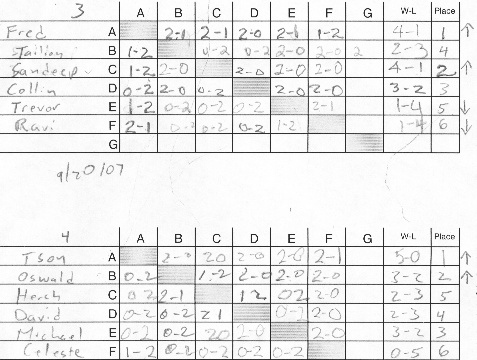 3 A B C D E F G W-L Place
Fred A 2-1 2-1 2-0 2-1 1-2 4-1 1 ↑
B 1-2 0-2 0-2 2-0 2-0 2-3 4
Sandeep C 1-2 2-0 2-0 2-0 2-0 4-1 2 ↑
Collin D 0-2 2-0 0-2 2-0 2-0 3-2 3
Trevor E 1-2 0-2 0-2 0-2 2-1 1-4 5 ↓
Ravi F 2-1 0-2 0-2 0-2 1-2 1-4 6 ↓
G
9/20/07
4 A B C D E F G W-L Place
Tson A 2-0 20 2-0 2-0 2-1 5-0 1 ↑
Oswald B 0-2 1-2 2-0 2-0 2-0 3-2 2 ↑
Herch C 02 2-1 12 02 2-0 2-3 5
David D 0-2 0-2 21 0-2 2-0 2-3 4
Michael E 0-2 0-2 20 2-0 2-0 3-2 3
Celeste F 1-2 0-2 0-2 0-2 0-2 0-5 6